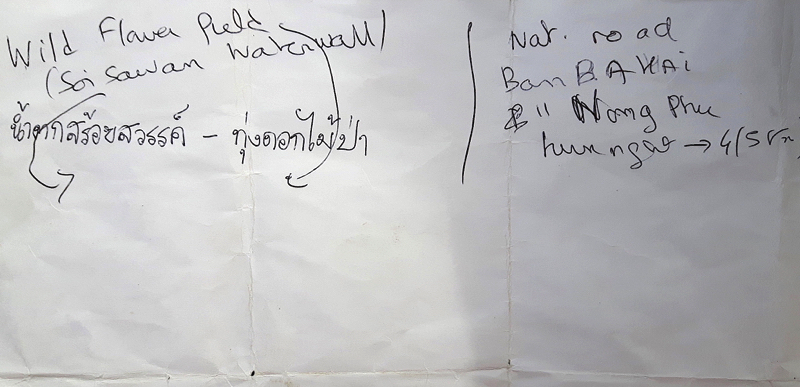 Wild Flower field
(Soi Sawan Waterwall)
น้ำตกสร้อยสวรรค์ - ทุ่งดอกไม้ป่า
Nat. road
Ban BAHAI
" Nong Phue
→ 4/5